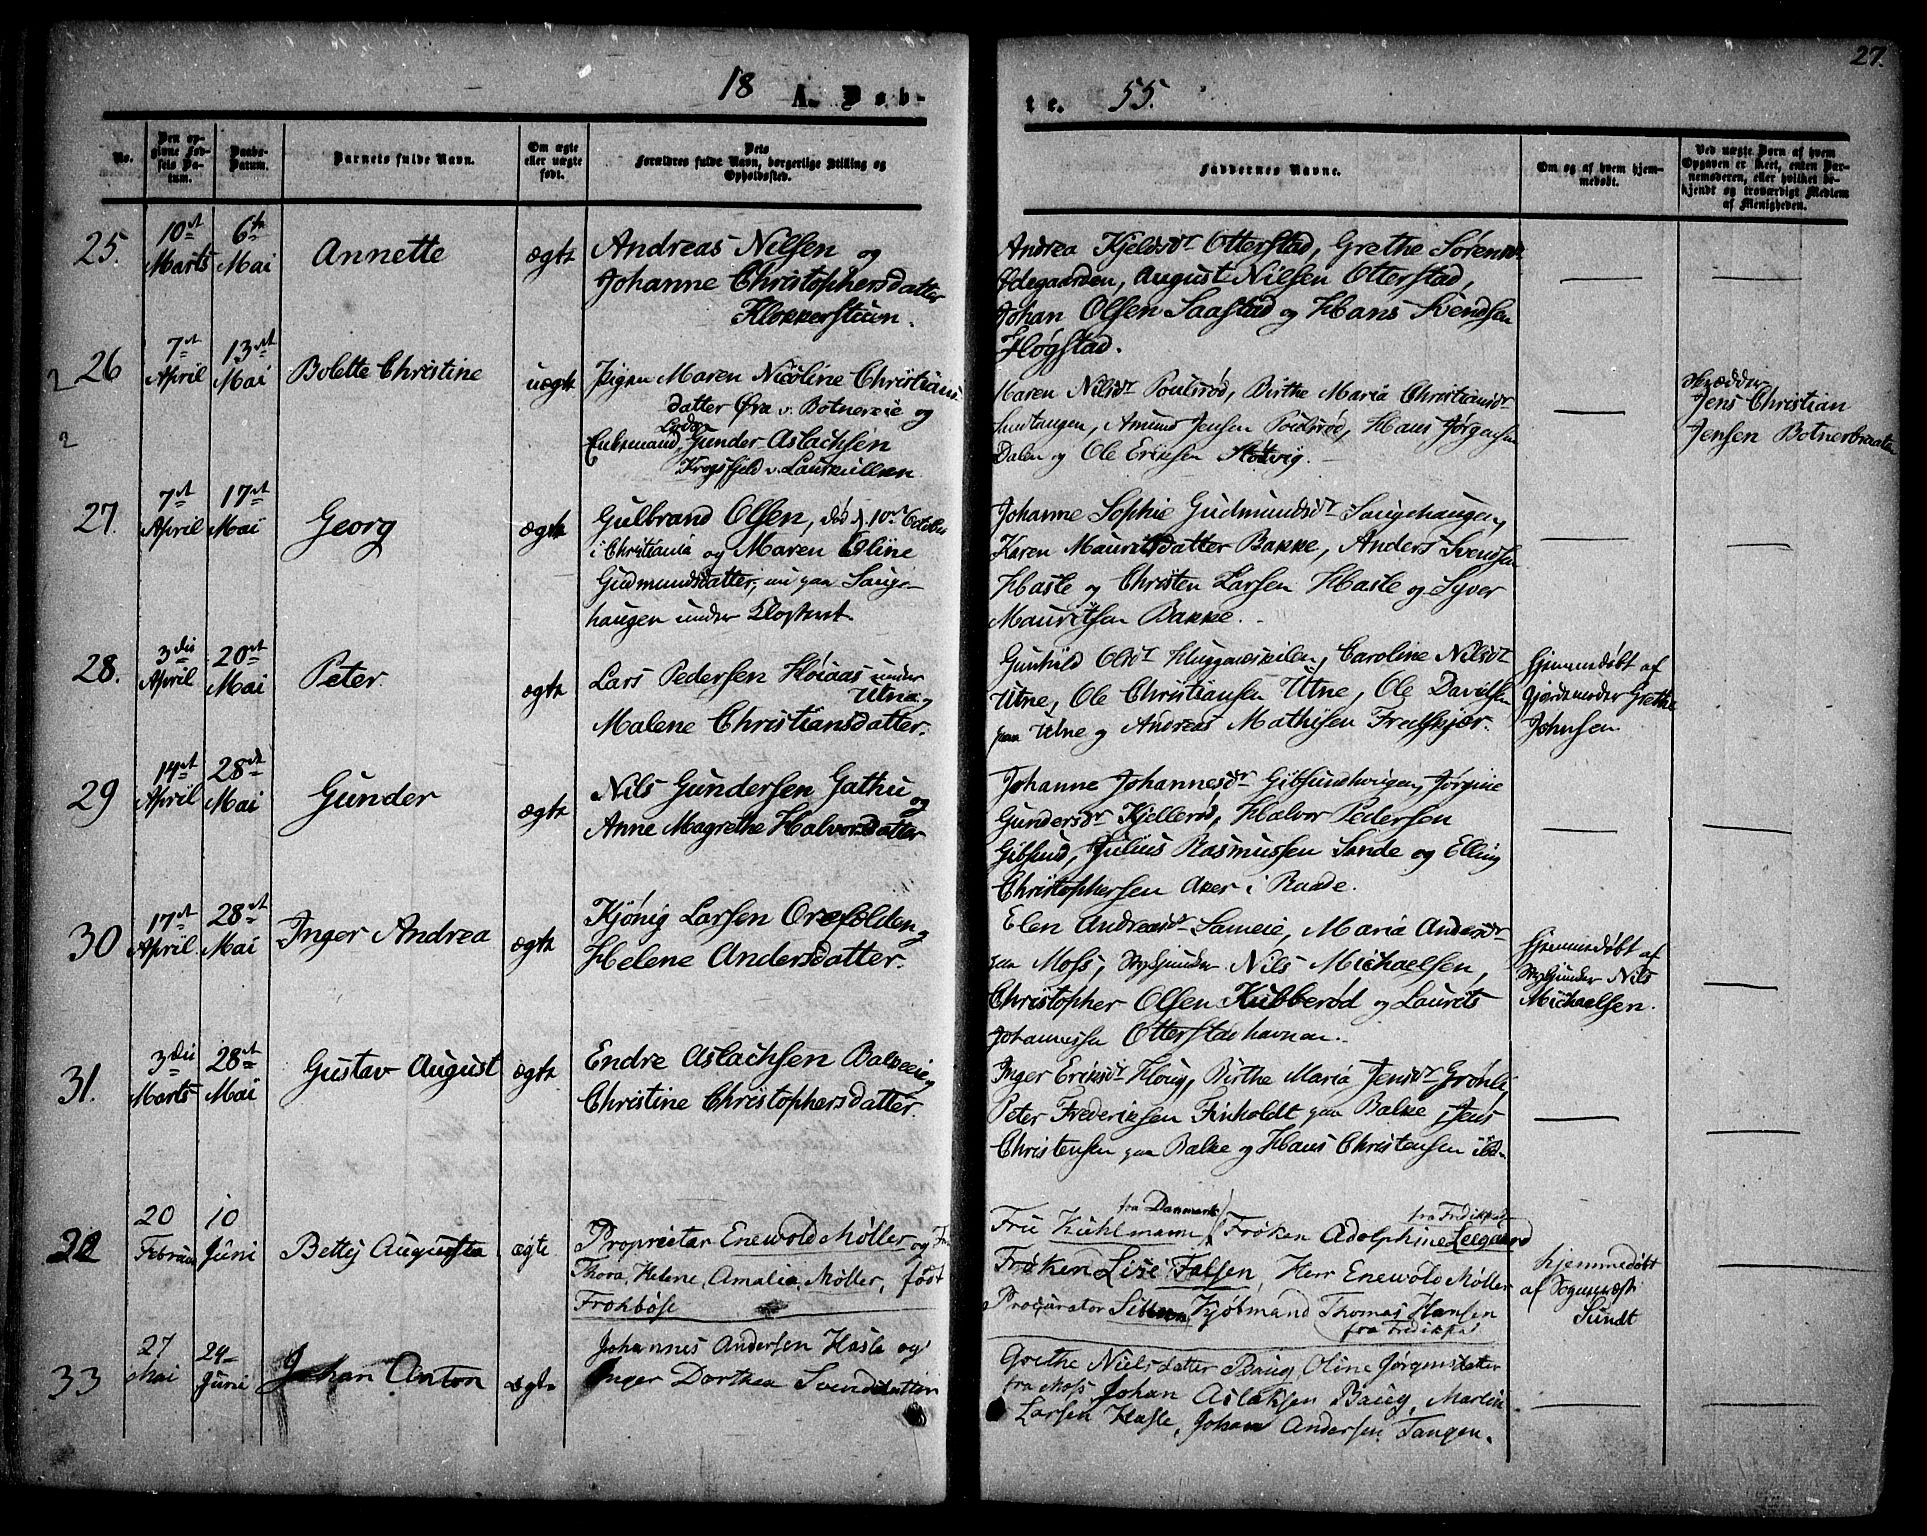 27.
18 A. Døb-
te. 55.
No.
Den op-
givne Fød-
sels Da-
tum.
Daabs-
Datum.
Barnets fulde Navn.
Om ægte
eller uægte
født.
Dets
Forældres fulde Navn, borgerlige Stilling og
Opholdssted.
Faddernes Navne.
Om og af hvem hjem-
medøbt.
Ved uægte Børn af hvem
Opgaven er skeet, enten Bar-
nemoderen, eller hvilket be-
kjendt og troværdigt Medlem
af Menigheden.
25. 10de Marts 6te Mai Annette ægte
Andreas Nilsen og
Johanne Christophersdatter
Klokkerstuen.
Andrea Kjeldsdr Otterstad, Grethe Sørensdr
Ødegaarden, August Nielsen Otterstad,
Johan Olsen Saastad og Hans Svendsen
Høgstad.
2 26 7de April 13de Mai Bolette Christine uægte
Pigen Maren Nicoline Christians-
datter Øra v. Botnereie og
Enkemand Gunder Aslachsen
Krogsfjeld v. Laurkullen
Maren Nilsdr Poulsrød, Birthe Maria Christiansdr
Amund Jensen Poulsrød, Hans Jørgensen
Dalen og Ole Eriksen
Skrædder
Jens Christian
Jensen Botnerbraaten
2
27. 7de April 17de Mai Georg ægte
Gulbrand Olsen, død d. 10de October
i Christiania og Maren Oline
Gudmundsdatter, nu paa Sauge-
haugen under Klosteret.
Johanne Sophie Gudmundsdr Saugehaugen,
Karen Mauritsdatter Bakke, Anders Svendsen
Hasle og Christen Larsen Hasle og Syver
Mauritsen Bakke.
28. 3die April 20de Mai Peter ægte
Lars Pedersen Høiaas under
Utne og
Malene Christiansdatter.
Gunhild Olsdr Huggeneskilen, Caroline Nilsdr
Utne, Ole Christiansen Utne, Ole Davidsen
paa Utne og Andreas Mathisen Fredskjær.
hjemmedøbt af
Gjordemoder Grethe
Johnsen
29 14de April 28de Mai Gunder ægte
Nils Gundersen Gathu
og
Anne Magrethe Halvorsdatter
Johanne Johannesdr Gibsundhougen, Jørgine
Gundersdr Kjellerød, Halvor Pedersen
Gibsund, Julius Rasmussen Sande og Elling
Christophersen Aker i Raade.
30 17de April 28de Mai Inger Andrea ægte
Kjönig Larsen Orefolden og
Helene Andersdatter.
Elen Andreasdr Sameie, Maria Andersdr
paa Moss, Nils Michaelsen,
Christopher Olsen Kubberød og Laurits
Johannessen Otterstadhavnan.
hjemmedøbt af
Nils
Michaelsen.
31. 3die Marts 28de Mai Gustav August ægte
Endre Aslachsen Balkeeie og
Christine Christophersdatter.
Inger Eriksdr Houg, Birthe Maria Jensdr Grønli
Peter Frederiksen Finholdt paa Balke, Jens
Christensen paa Balke og Hans Christensen ibd.
32 20 Februar 10 Juni Bettej Augusta ægte
Proprietær Enewold Møller og Fru
Thora, Helene, Amalia, Møller, født
Frohböse
fra Danmark fra Fredikstad
Fru Kuhlmann, Frøken Adolphine Leegaard
Frøken Lise Falsen, Herr Enewold Møller
Procurator Sibbern, Kjøbmand Thomas Hansen
fra Fredikstad
hjemmedøbt
af Sogneprest
Sundt
33 27 Mai 24 Juni Johan Anton ægte
Johannes Andersen Hasle og
Inger Dorthea Svendsdatter
Grethe Nielsdatter Baug, Oline Jørgensdatter
fra Moss, Johan Aslaksen Baug, Martin
Larsen Hasle, Johan Andersen Tangen.